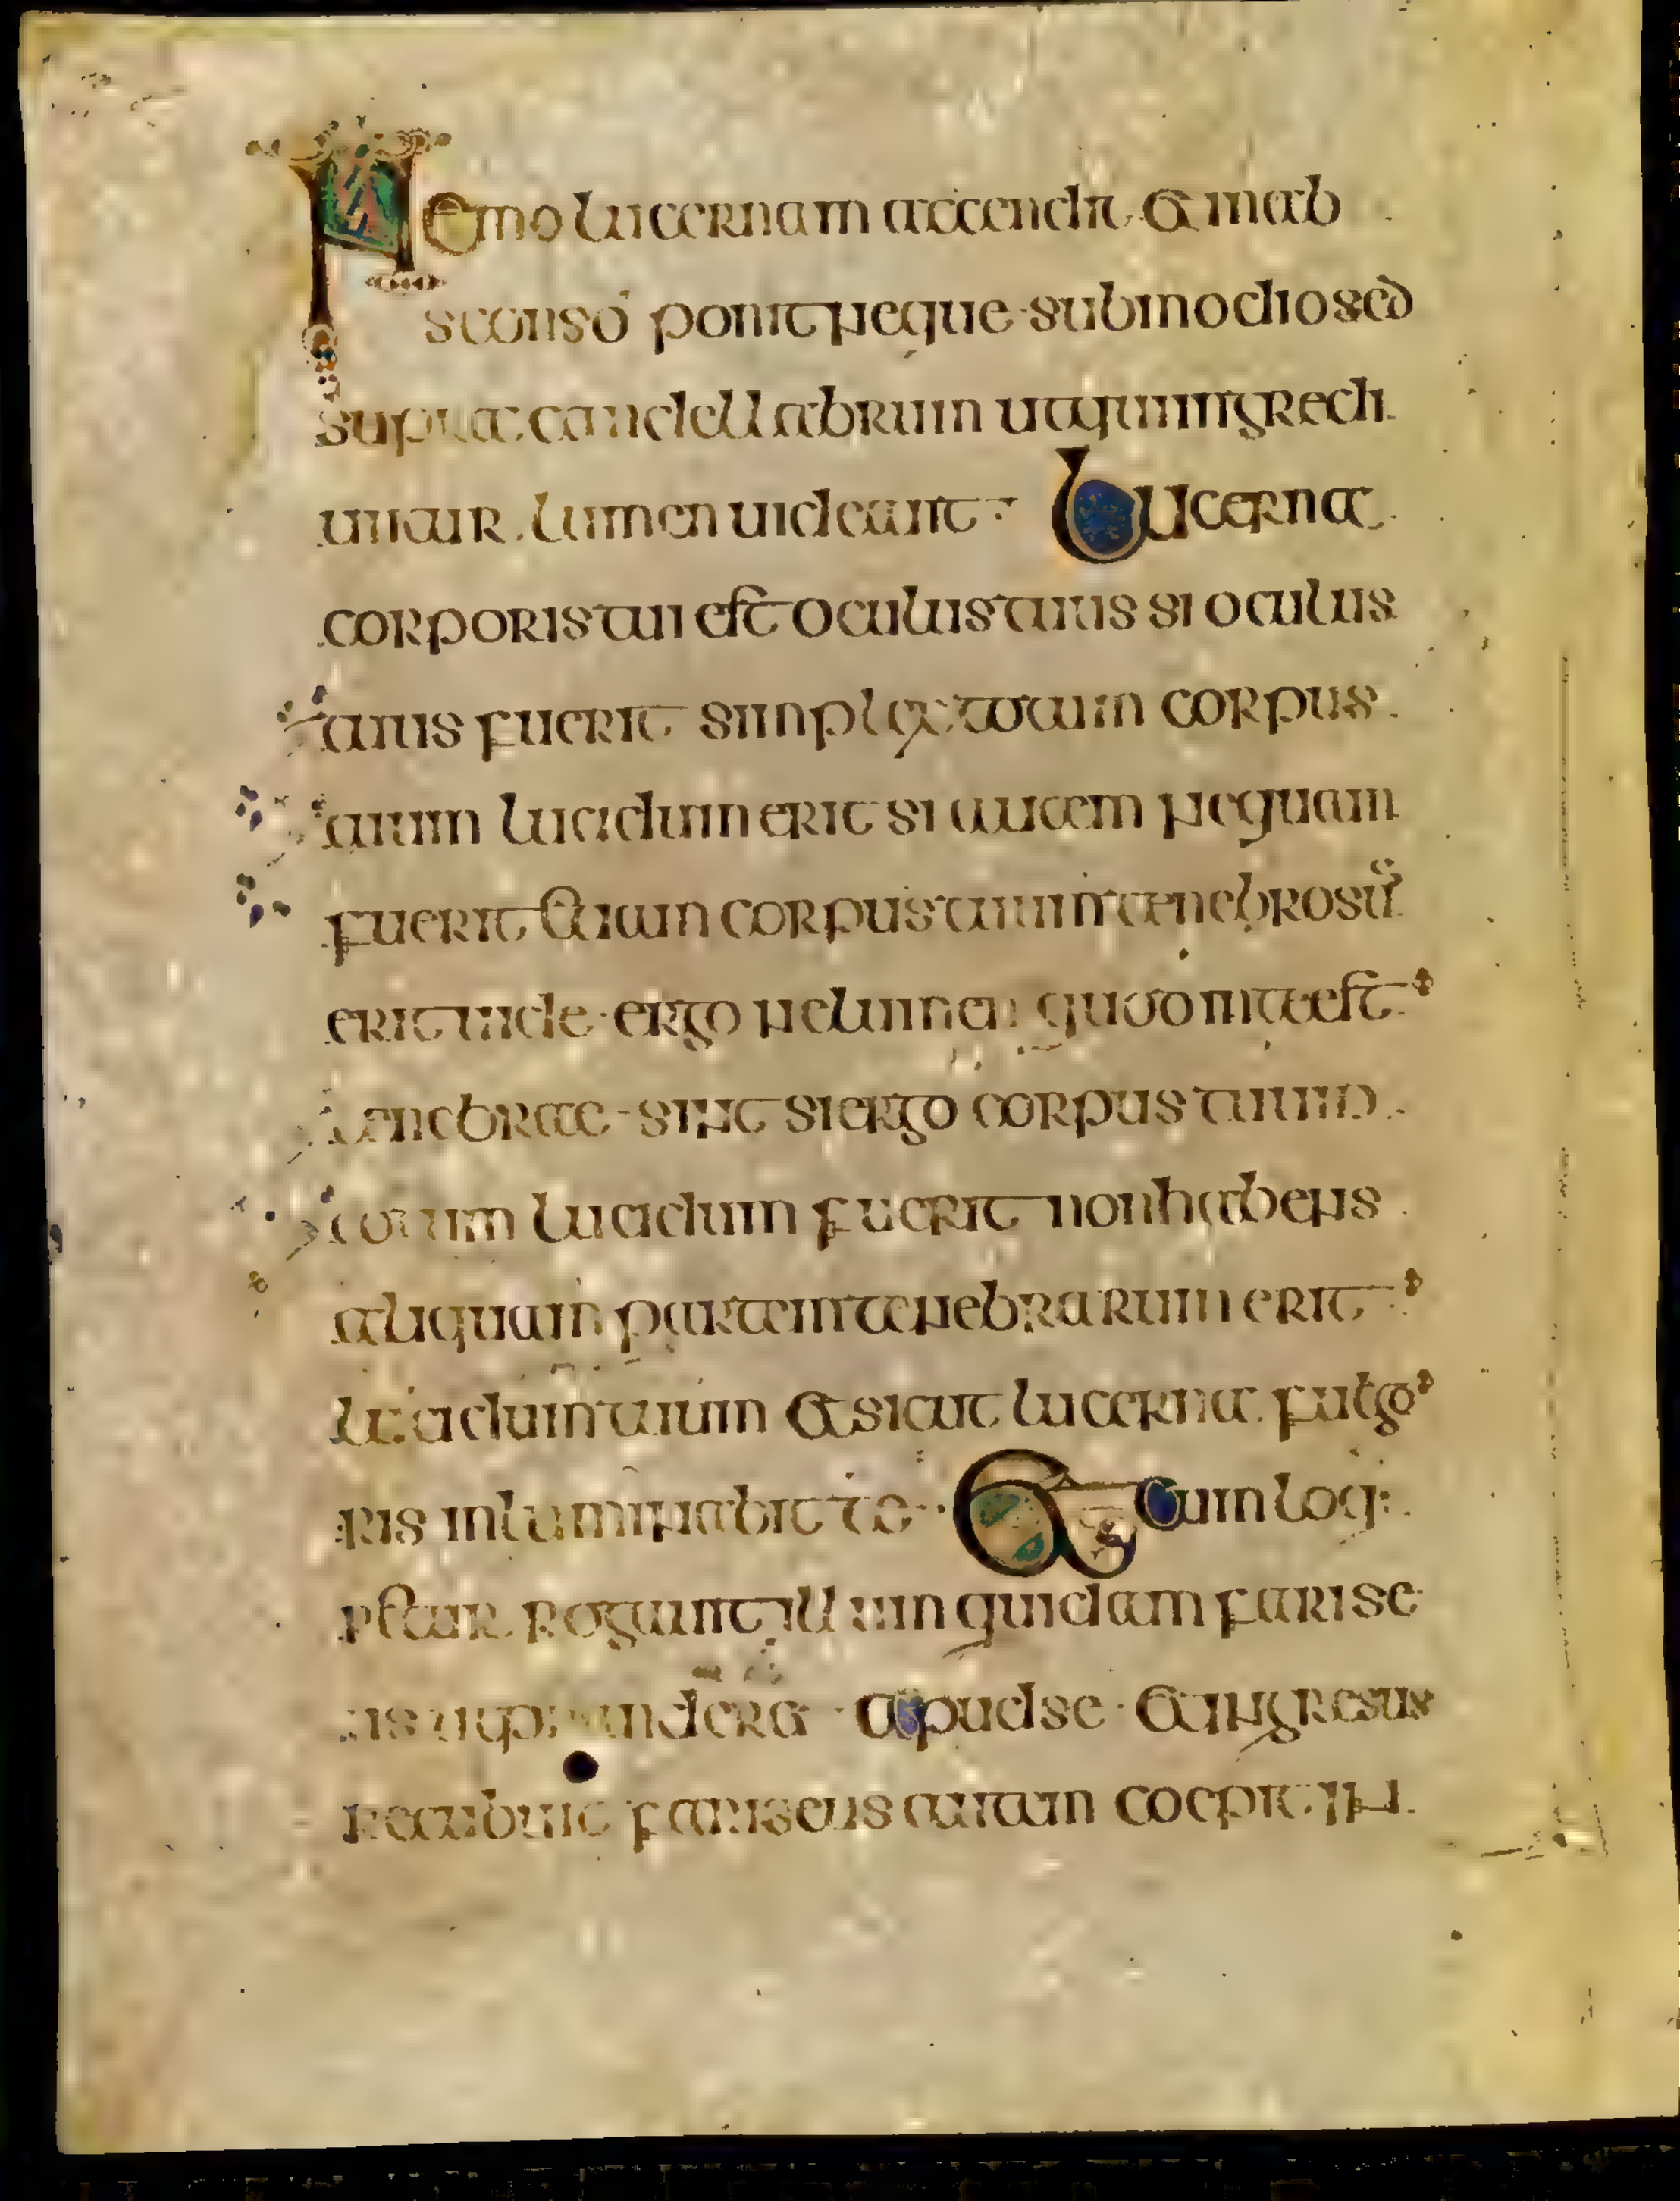 Nemo lucernam accendit & in ab
sconso ponit neque sub modio sed
supra candellabrum ut qui ingredi
untur lumen uideant Lucerna
corporis tui est oculus tuus si oculus
tuus fuerit simplex totum corpus
tuum lucidum erit si autem nequam
fuerit &iam corpus tuum tenebrosū
erit uide ergo ne lumen quod in te est
tenebrae sint si ergo corpus tuum
totum lucidum fuerit non habens
aliquam partem tenebrarum erit
lucidum totum & sicut lucerna fulgo
ris inluminabit te & cum loq:
r&ur rogauit illum quidam farise
us ut prander& apud se & ingresus
recubuit fariseus autem coepit in